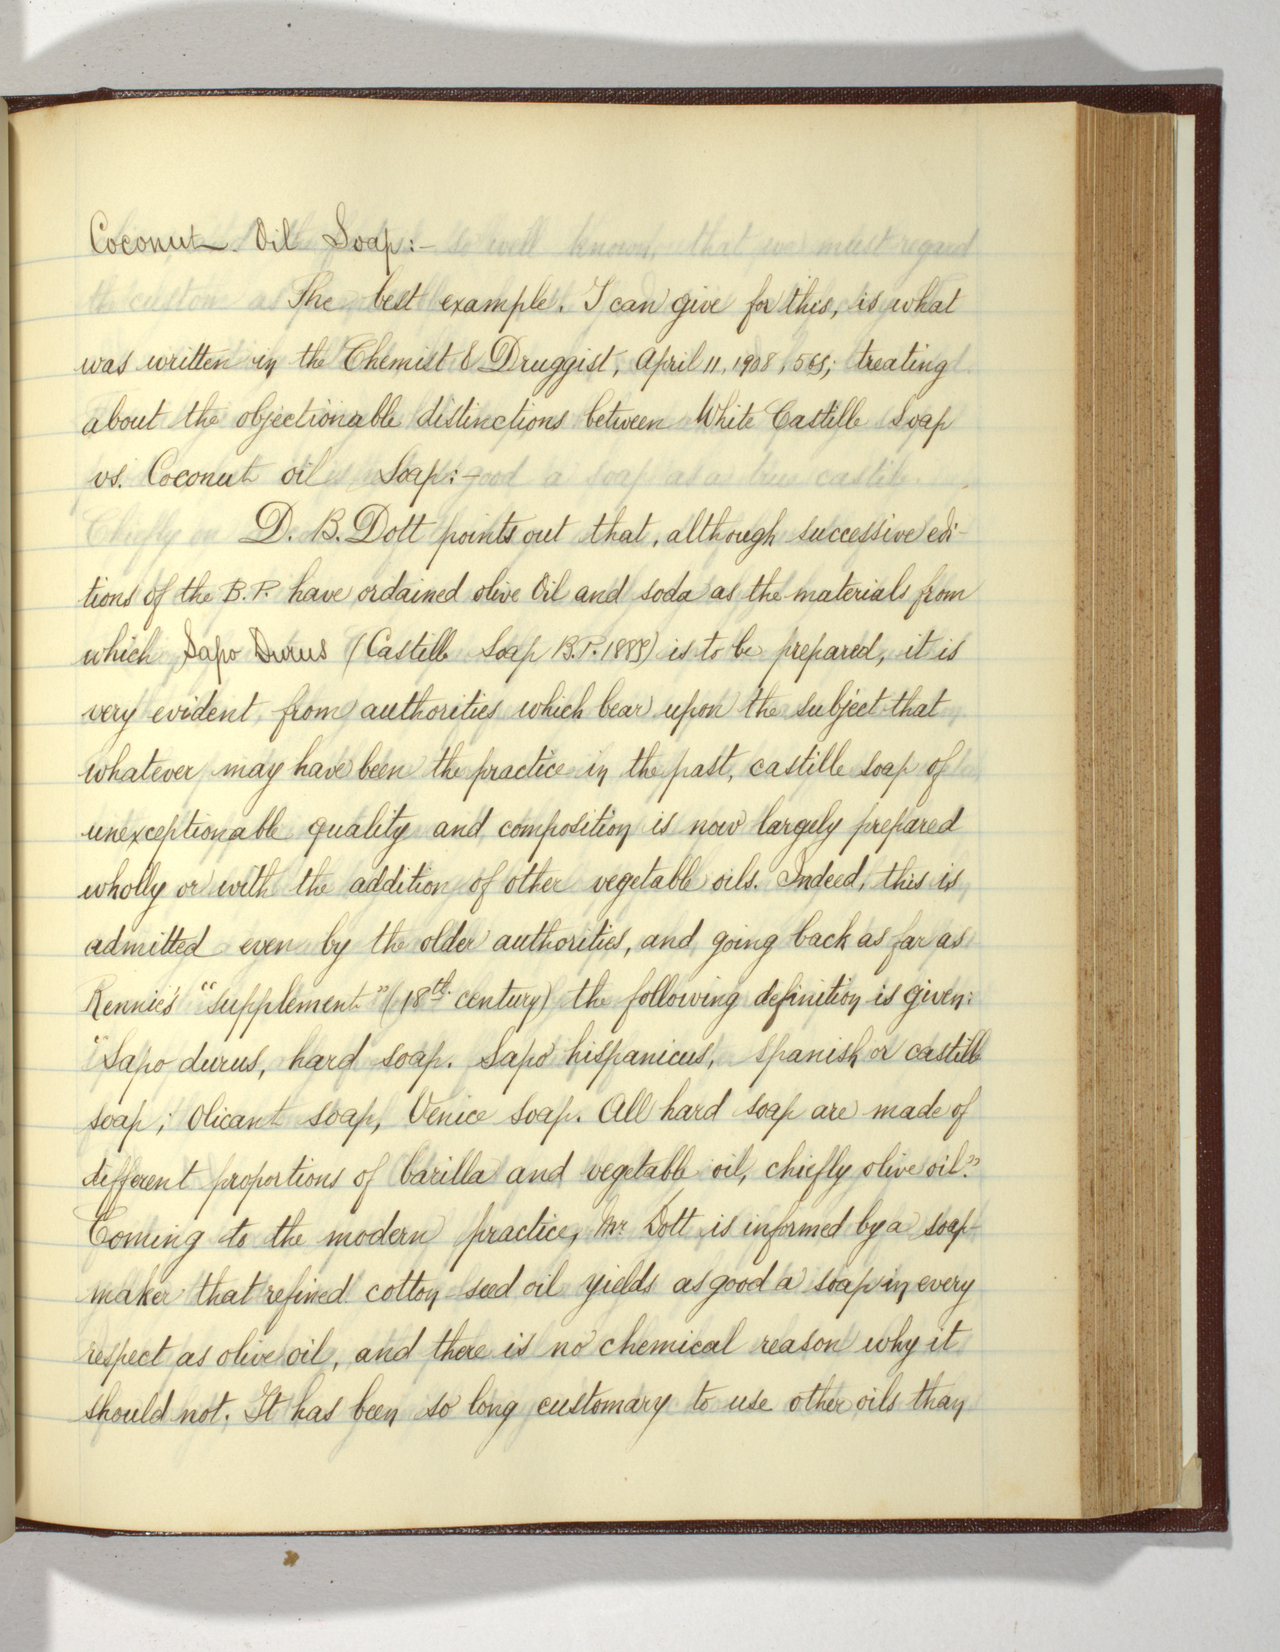 Coconut Oil Soap:-
The best example. I can give for this, is what
was written in the Chemist & Druggist, April 11, 1908, 565; treating
about the objectionable distinctions between White Castille Soap
vs. Coconut oil Soap:-
D. B. Dott points out that, although successive edi-
tions of the B.P. have ordained olive Oil and soda as the materials from
which Sapo Durus (Castille Soap B.P. 1885) is to be prepared, it is
very evident, from authorities which bear upon the subject that
whatever may have been the practice in the past, castille soap of
unexceptionable quality and composition is now largely prepared
wholly or with the addition of other vegetable oils. Indeed, this is
admitted even by the older authorities, and going back as far as
Rennie's "Supplement" (18th. century) the following definition is given:
"Sapo durus, hard soap. Sapo hispanicus, Spanish or castille
soap; Olicant soap, Venice soap. All hard soap are made of
different proportions of barilla and vegetable oil, chiefly olive oil."
Coming to the modern practice, Mr. Dott is informed by a soap-
maker that refined cotton seed oil yields as good a soap in every
respect as olive oil, and there is no chemical reason why it
should not. It has been so long customary to use other oils than